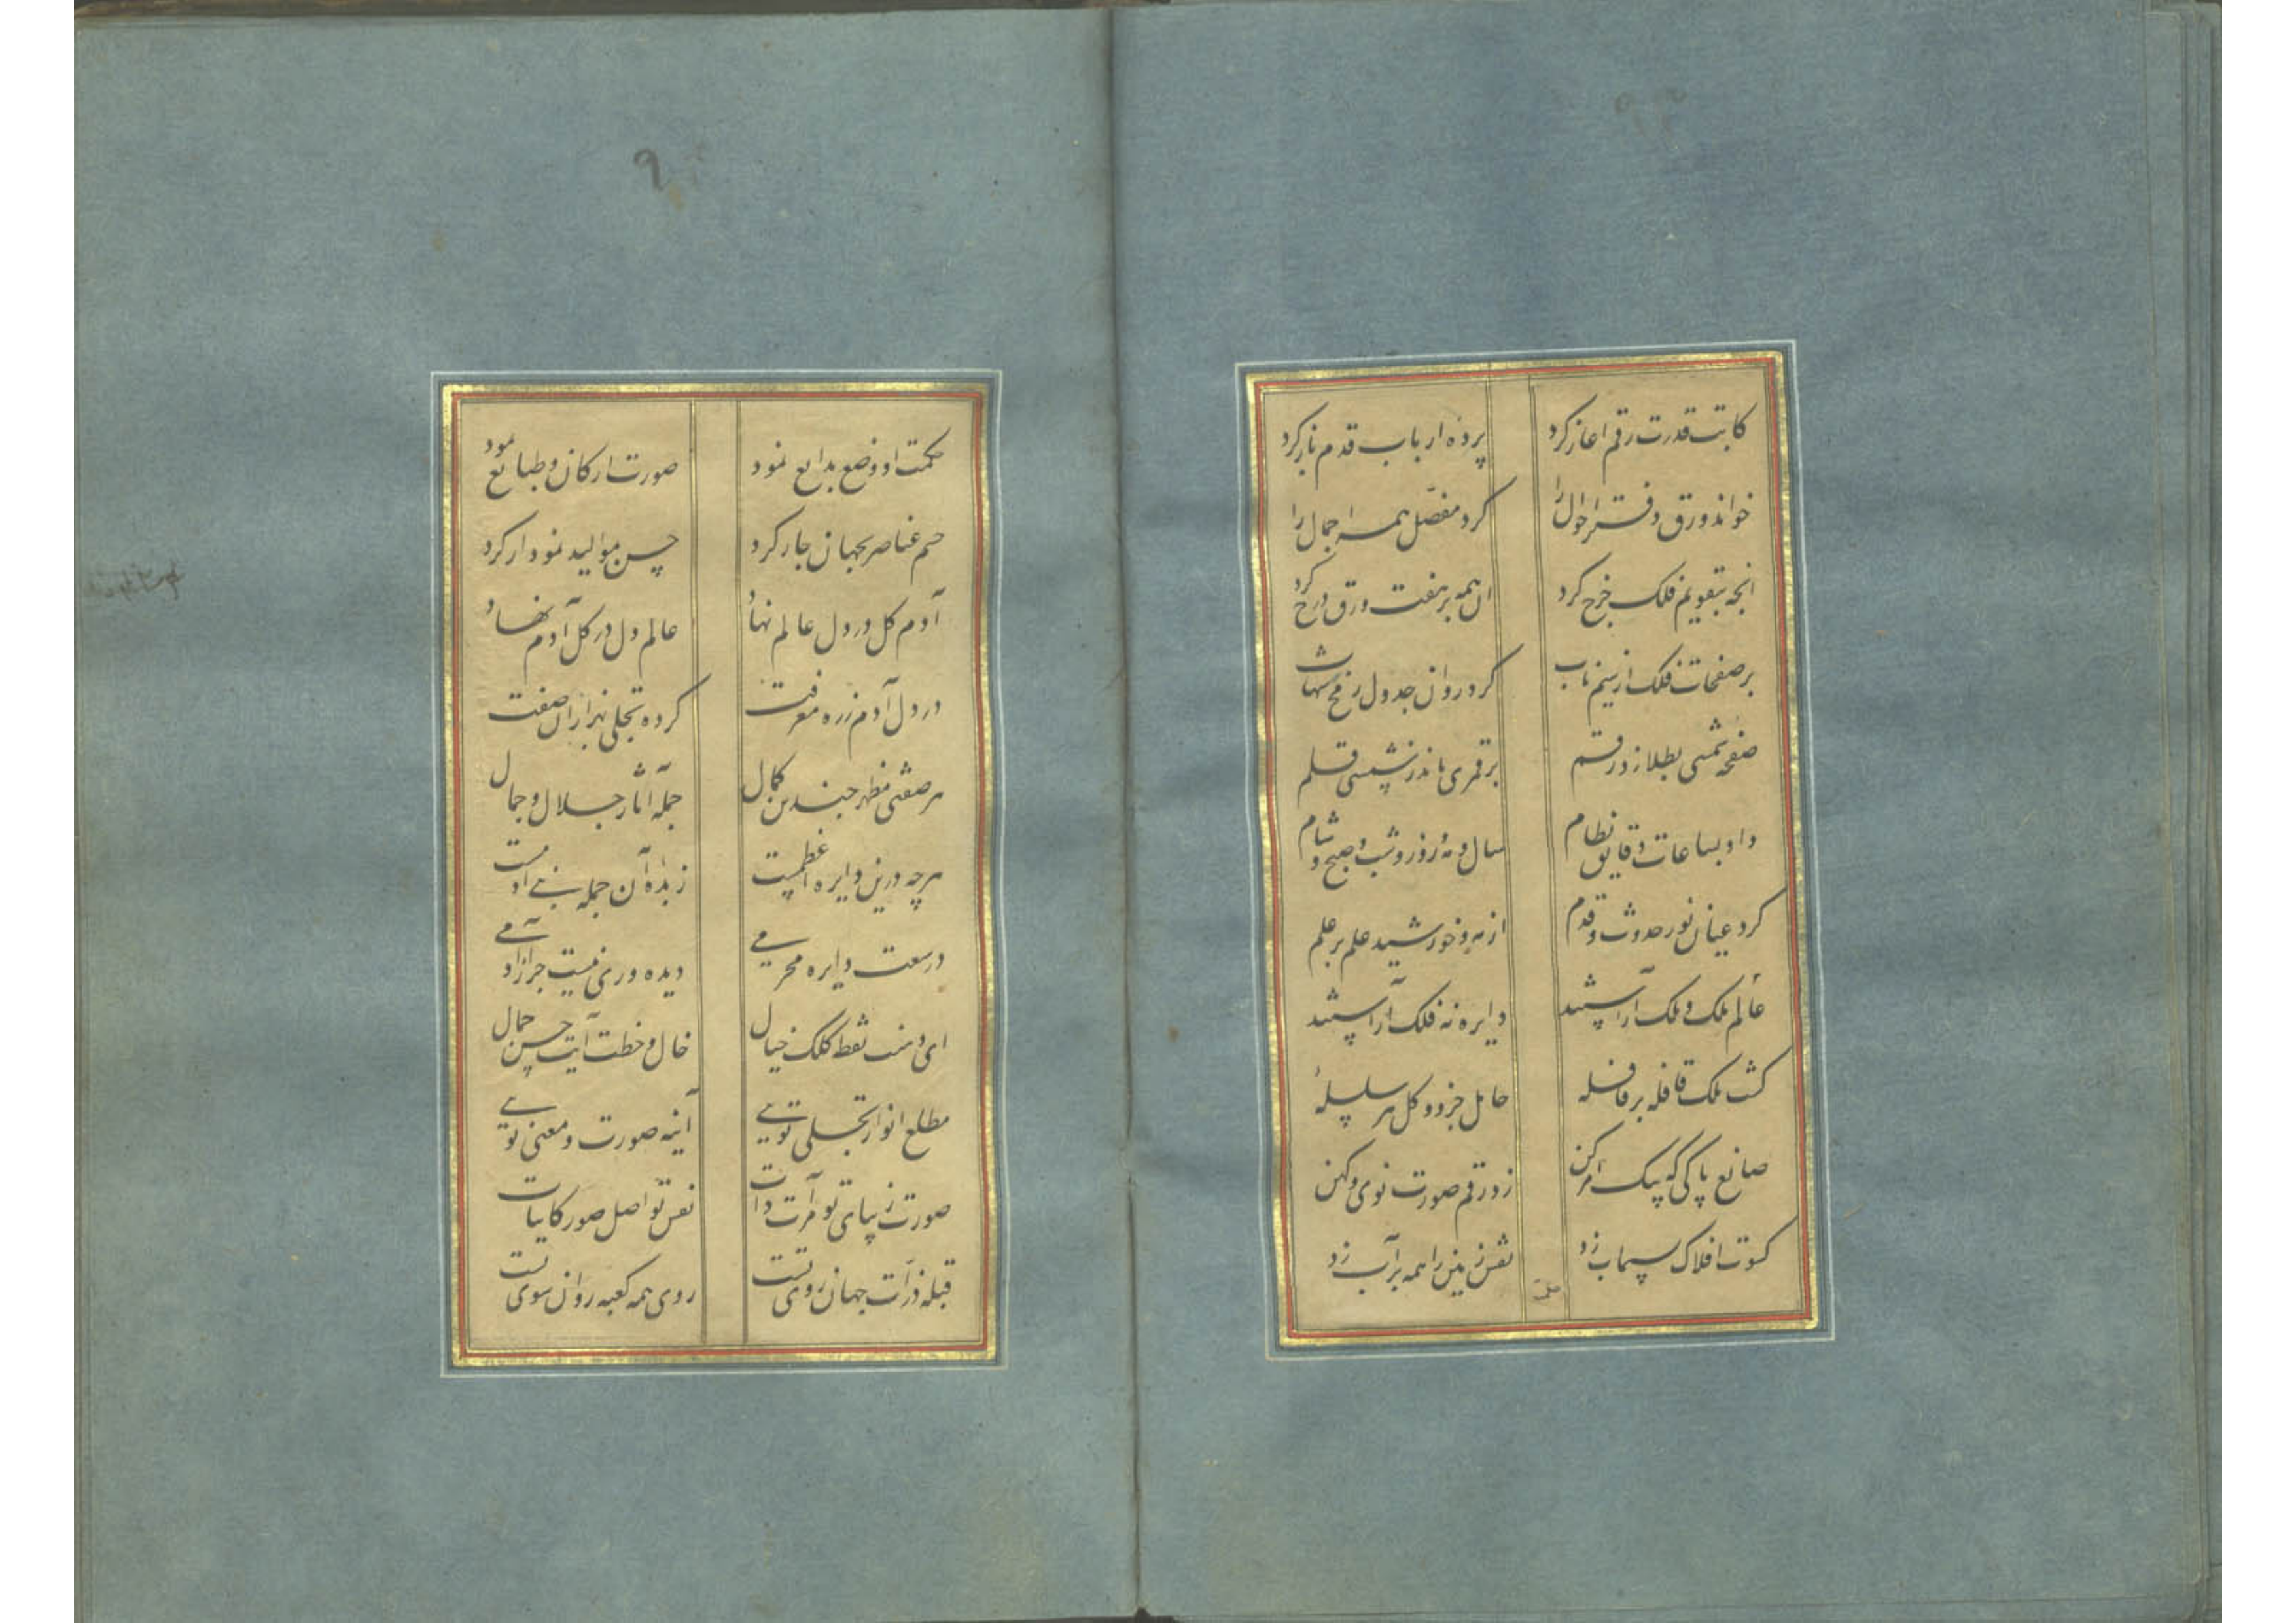 کاتب قدرت رقم آغاز کرد پرده ارباب قدم باز کرد
خواند ورق دفتر احوال را کرد مفصل همه اجمال را
انچه بتقویم فلک خرج کرد ان همه بر هفت ورق درج کرد
بر صفحات فلک از سیم ناب کرد روان جدول زر شهاب
صفحه شمسی بطلا زد رقم بر قمری ماند ز شمسی قلم
داد بساعات و دقایق نظام سال و مه و روز و شب و صبح و شام
کرد عیان نور حدوث و قدم از مه و خورشید علم بر علم
عالم ملک و ملک آراسته دایره نه فلک آراسته
گشت ملک قافله بر قافله حامل جزو و کل هر سلسله
صانع پاکی که بیک امر کن زد رقم صورت نوی و کهن
کسوت افلاک بسیماب زد نقش زمین را همه بر آب زد
۹
حکمت او وضع بدایع نمود صورت ارکان و طبایع نمود
جسم عناصر بجهان چار کرد جنس موالید نمودار کرد
آدم گل در دل عالم نهاد عالم دل در گل آدم نهاد
در دل آدم ز ره معرفت کرده تجلی بهزاران صفت
هر صفتی مظهر چندین کمال جمله آثار جلال و جمال
هر چه درین دایره اعظمیست زبده آن جمله بنی آدمست
در سعت دایره محرمی دیده وری نیست جز از آدمی
ای دهنت نقطه کلک خیال خال و خطت آیت حسن جمال
مطلع انوار تجلی تویی آینه صورت و معنی تویی
صورت زیبای تو مرآت ذات نقش تو اصل صور کاینات
قبله ذرات جهان روی تست روی همه کعبه روان سوی تست